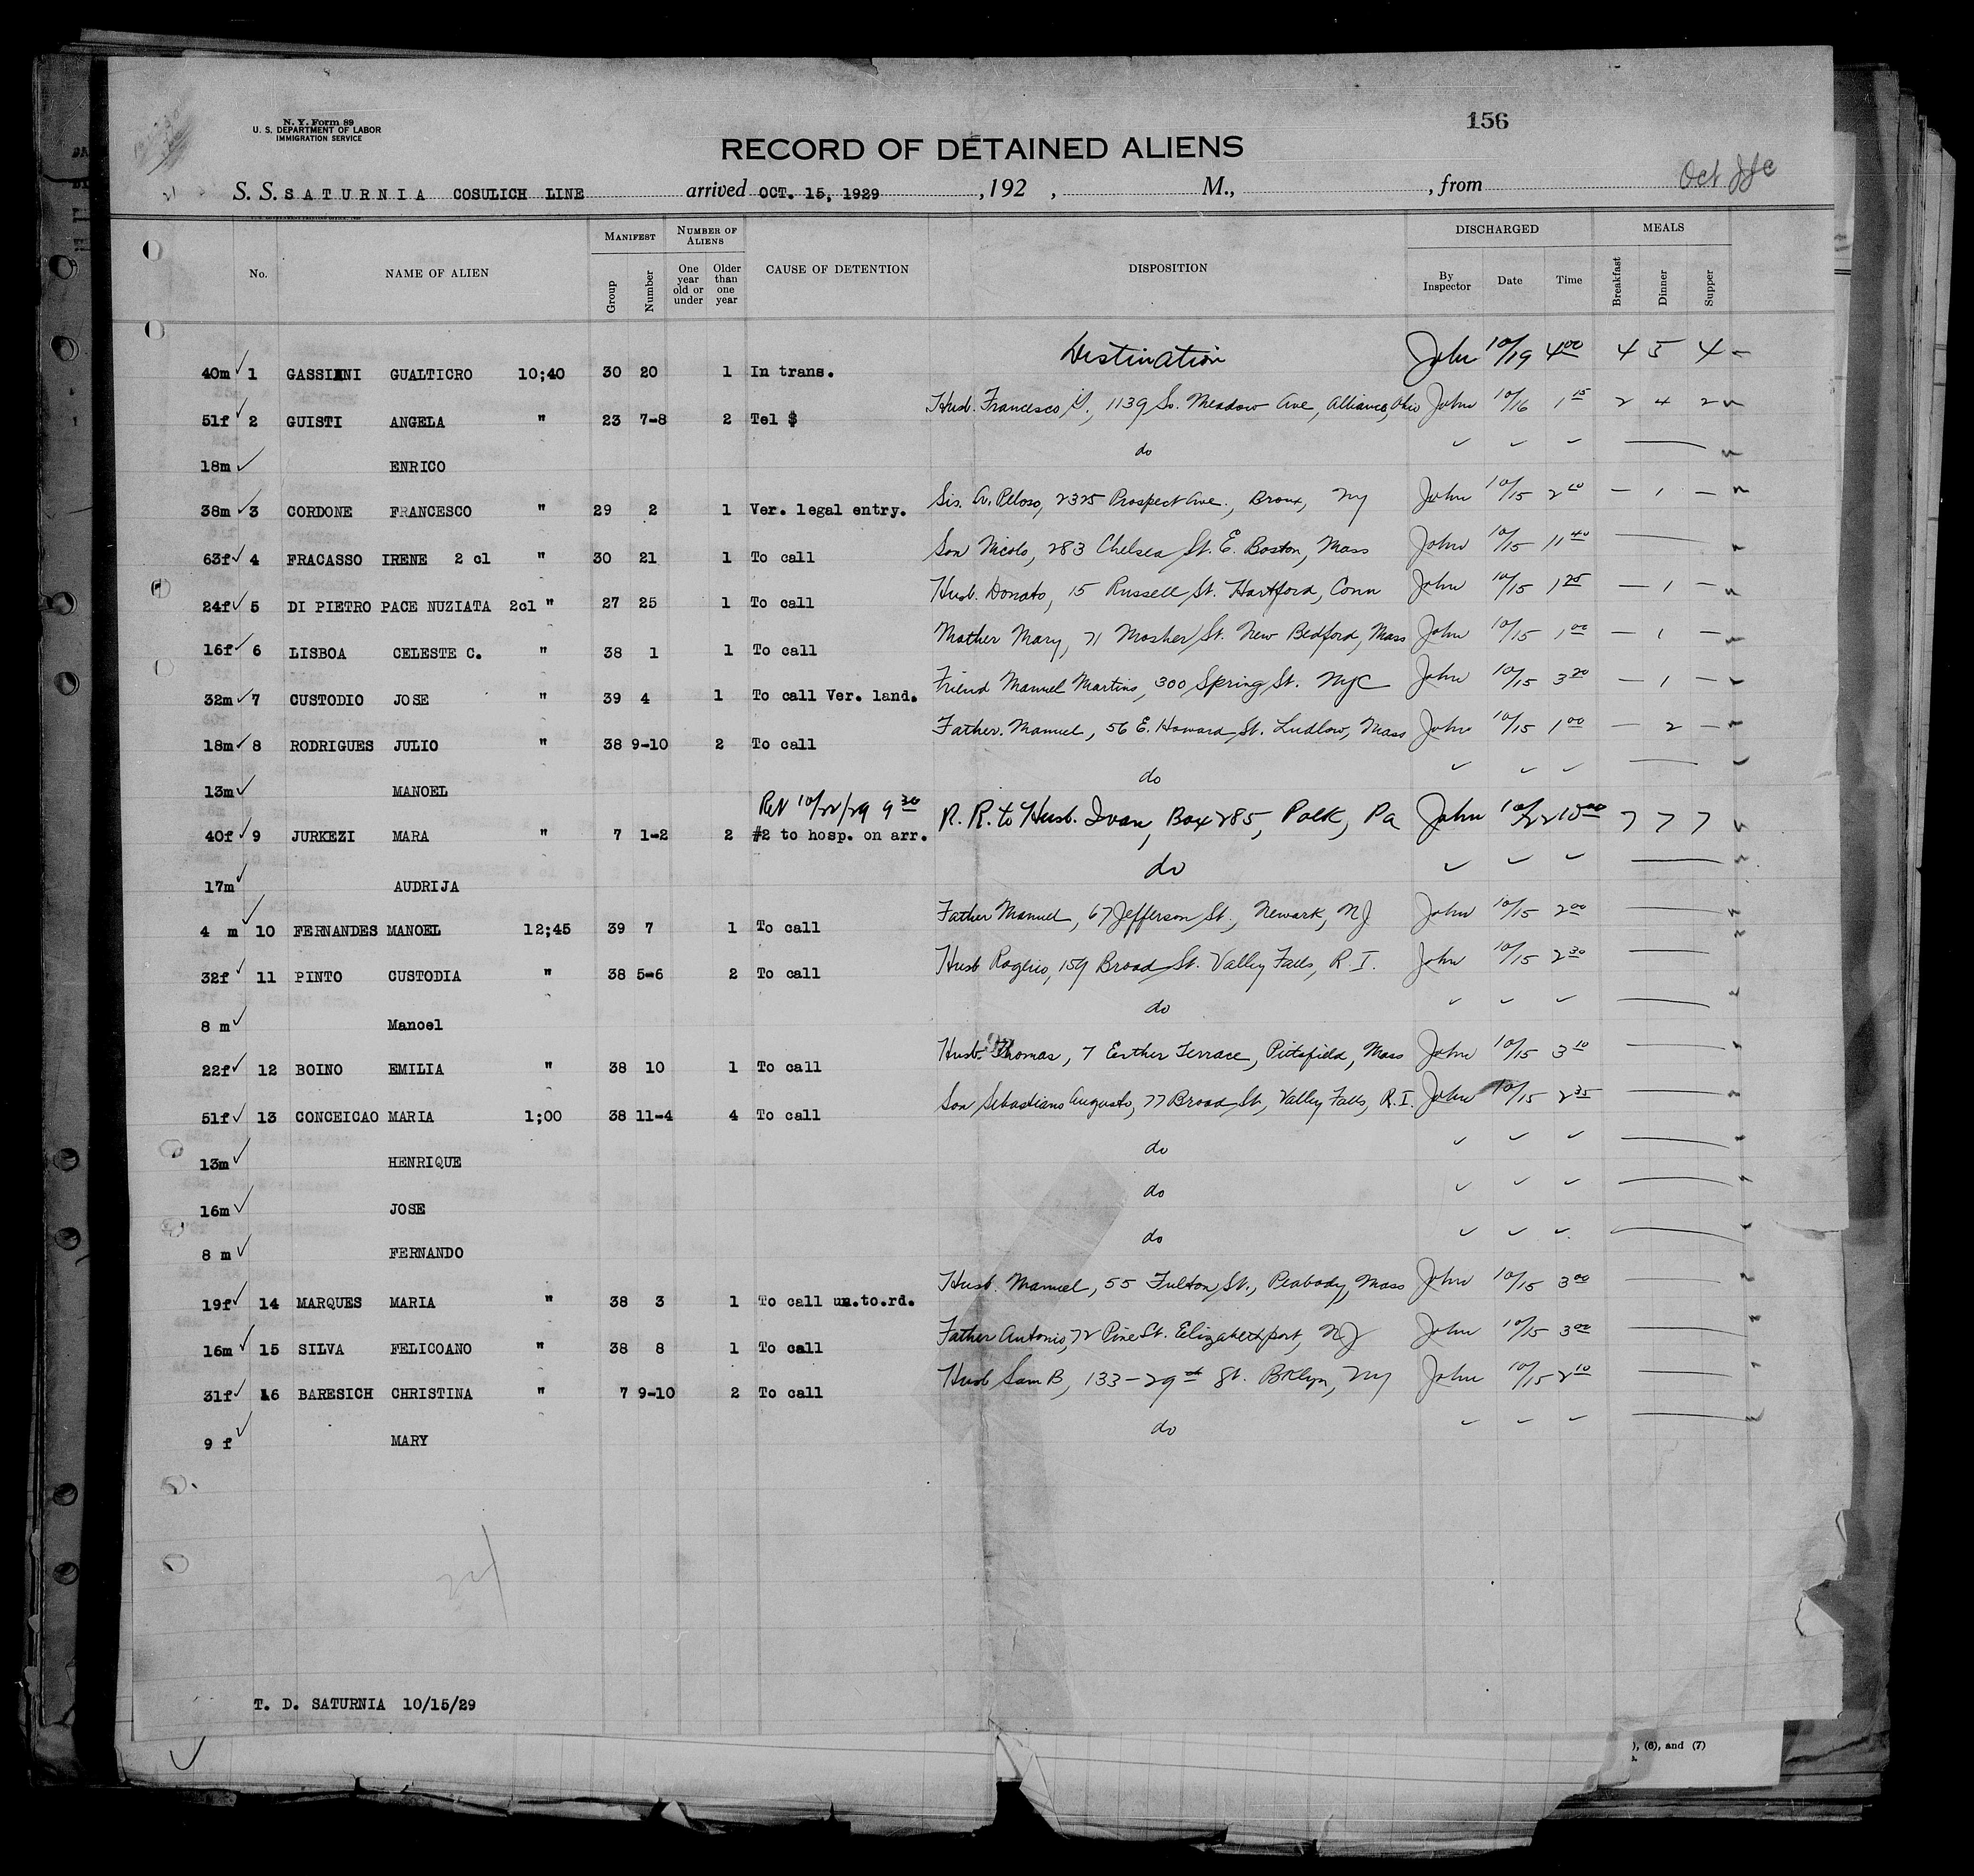 N. Y. Form 89
U. S. DEPARTMENT OF LABOR
IMMIGRATION SERVICE
156
RECORD OF DETAINED ALIENS
S. S. SATURNIA COSULICH LINE arrived OCT. 15, 1929 , 192 , M., , from Oct
No. NAME OF ALIEN MANIFEST Group Number NUMBER OF ALIENS One year old or under Older than one year CAUSE OF DETENTION DISPOSITION DISCHARGED By Inspector Date Time MEALS Breakfast Dinner Supper
40m ✓ 1 GASSINI GUALTICRO 10;40 30 20 1 In trans. Destination John 10/19 4 00 4 5 4
51f ✓ 2 GUISTI ANGELA " 23 7-8 2 Tel $ Husb. Francesco G., 1139 So. Meadow Ave, Alliance, Ohio John 10/16 1 15 2 4 2
18m ✓ ENRICO do ✓ ✓ ✓ —
38m ✓ 3 CORDONE FRANCESCO " 29 2 1 Ver. legal entry. Sis. A. Peloso, 2325 Prospect Ave., Bronx, NY John 10/15 2 — 1 —
63f ✓ 4 FRACASSO IRENE 2 cl " 30 21 1 To call Son Nicolo, 283 Chelsea St. E. Boston, Mass John 10/15 11 40 —
24f ✓ 5 DI PIETRO PACE NUZIATA 2cl " 27 25 1 To call Husb. Donato, 15 Russell St. Hartford, Conn John 10/15 1 25 — 1 —
16f ✓ 6 LISBOA CELESTE C. " 38 1 1 To call Mother Mary, 71 Mosher St. New Bedford, Mass John 10/15 1 00 — 1 —
32m ✓ 7 CUSTODIO JOSE " 39 4 1 To call Ver. land. Friend Manuel Martins, 300 Spring St. NYC John 10/15 3 20 — 1 —
18m ✓ 8 RODRIGUES JULIO " 38 9-10 2 To call Father. Manuel, 56 E. Howard St. Ludlow, Mass John 10/15 1 00 — 2 —
13m ✓ MANOEL do ✓ ✓ ✓ —
Rev 10/22/29 9 30
40f ✓ 9 JURKEZI MARA " 7 1-2 2 #2 to hosp. on arr. R. R. to Husb. Ivan, Box 285, Polk, Pa John 10/22 10 00 7 7 7
17m ✓ AUDRIJA do ✓ ✓ ✓ —
4 m ✓ 10 FERNANDES MANOEL 12;45 39 7 1 To call Father Manuel, 67 Jefferson St., Newark, NJ John 10/15 2 00 —
32f ✓ 11 PINTO CUSTODIA " 38 5-6 2 To call Husb Rogerio, 159 Broad St. Valley Falls, R. I. John 10/15 2 30 —
8 m ✓ Manoel do ✓ ✓ ✓ —
22f ✓ 12 BOINO EMILIA " 38 10 1 To call Husb. Thomas, 7 Esther Terrace, Pittsfield, Mass John 10/15 3 10 —
51f ✓ 13 CONCEICAO MARIA 1;00 38 11-4 4 To call Son Sebastiano Augusto, 77 Broad St., Valley Falls, R. I. John 10/15 2 35 —
13m ✓ HENRIQUE do ✓ ✓ ✓ —
16m ✓ JOSE do ✓ ✓ ✓ —
8 m ✓ FERNANDO do ✓ ✓ ✓ —
19f ✓ 14 MARQUES MARIA " 38 3 1 To call un.to.rd. Husb. Manuel, 55 Fulton St., Peabody, Mass John 10/15 3 00 —
16m ✓ 15 SILVA FELICOANO " 38 8 1 To call Father Antonio, 72 Pine St. Elizabethport, NJ John 10/15 3 00 —
31f ✓ 16 BARESICH CHRISTINA " 7 9-10 2 To call Husb Sam B, 133-29th St. Bklyn, NY John 10/15 2 10 —
9 f ✓ MARY do ✓ ✓ ✓ —
T. D. SATURNIA 10/15/29
), (6), and (7)